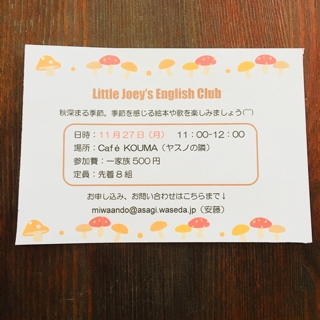 Little Joey's English Club
秋深まる季節。季節を感じる絵本や歌を楽しみましょう(⌒)
日時：11月27日（月）　11：00-12：00
場所：Café KOUMA（ヤスノの隣）
参加費：一家族500円
定員：先着8組
お申し込み、お問い合わせはこちらまで↓
miwaando@asagi.waseda.jp（安藤）